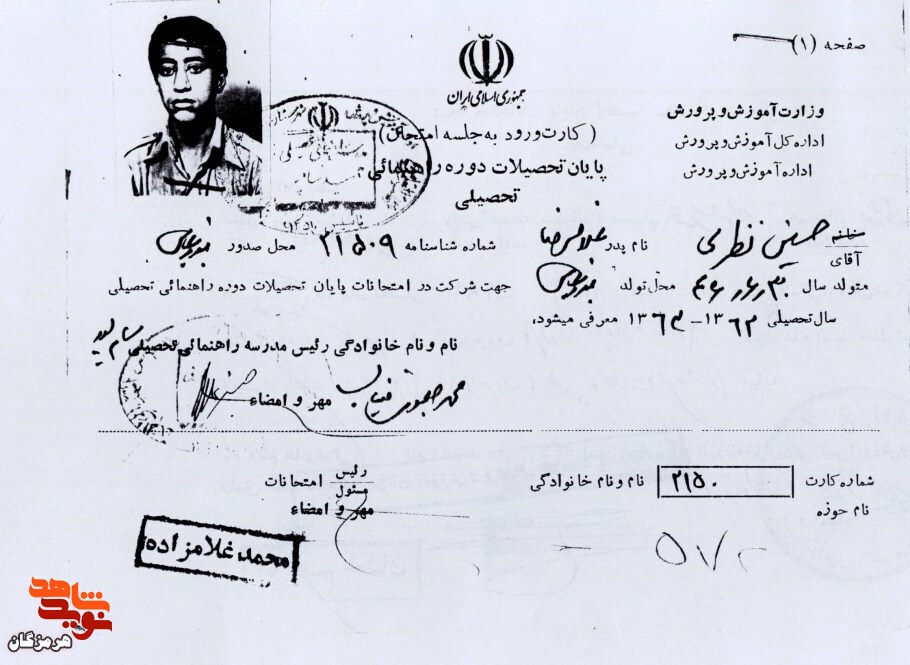 صفحه (۱)
جمهوری اسلامی ایران
وزارت آموزش و پرورش
اداره کل آموزش و پرورش
اداره آموزش و پرورش
(کارت ورود به جلسه امتحان)
پایان تحصیلات دوره راهنمائی
تحصیلی
آقای حسین نظری نام پدر غلامرضا شماره شناسنامه ۲۱۵۰۹ محل صدور بندرعباس
متولد سال محل تولد بندرعباس جهت شرکت در امتحانات پایان تحصیلات دوره راهنمائی تحصیلی
سال تحصیلی ۱۳۶۳-۱۳۶۲ معرفی میشود،
نام و نام خانوادگی رئیس مدرسه راهنمائی تحصیلی
مهر و امضاء
شماره کارت ۲۱۵۰ نام و نام خانوادگی رئیس مسئول امتحانات
نام حوزه مهر و امضاء
محمد غلامزاده
نوید شاهد
هرمزگان